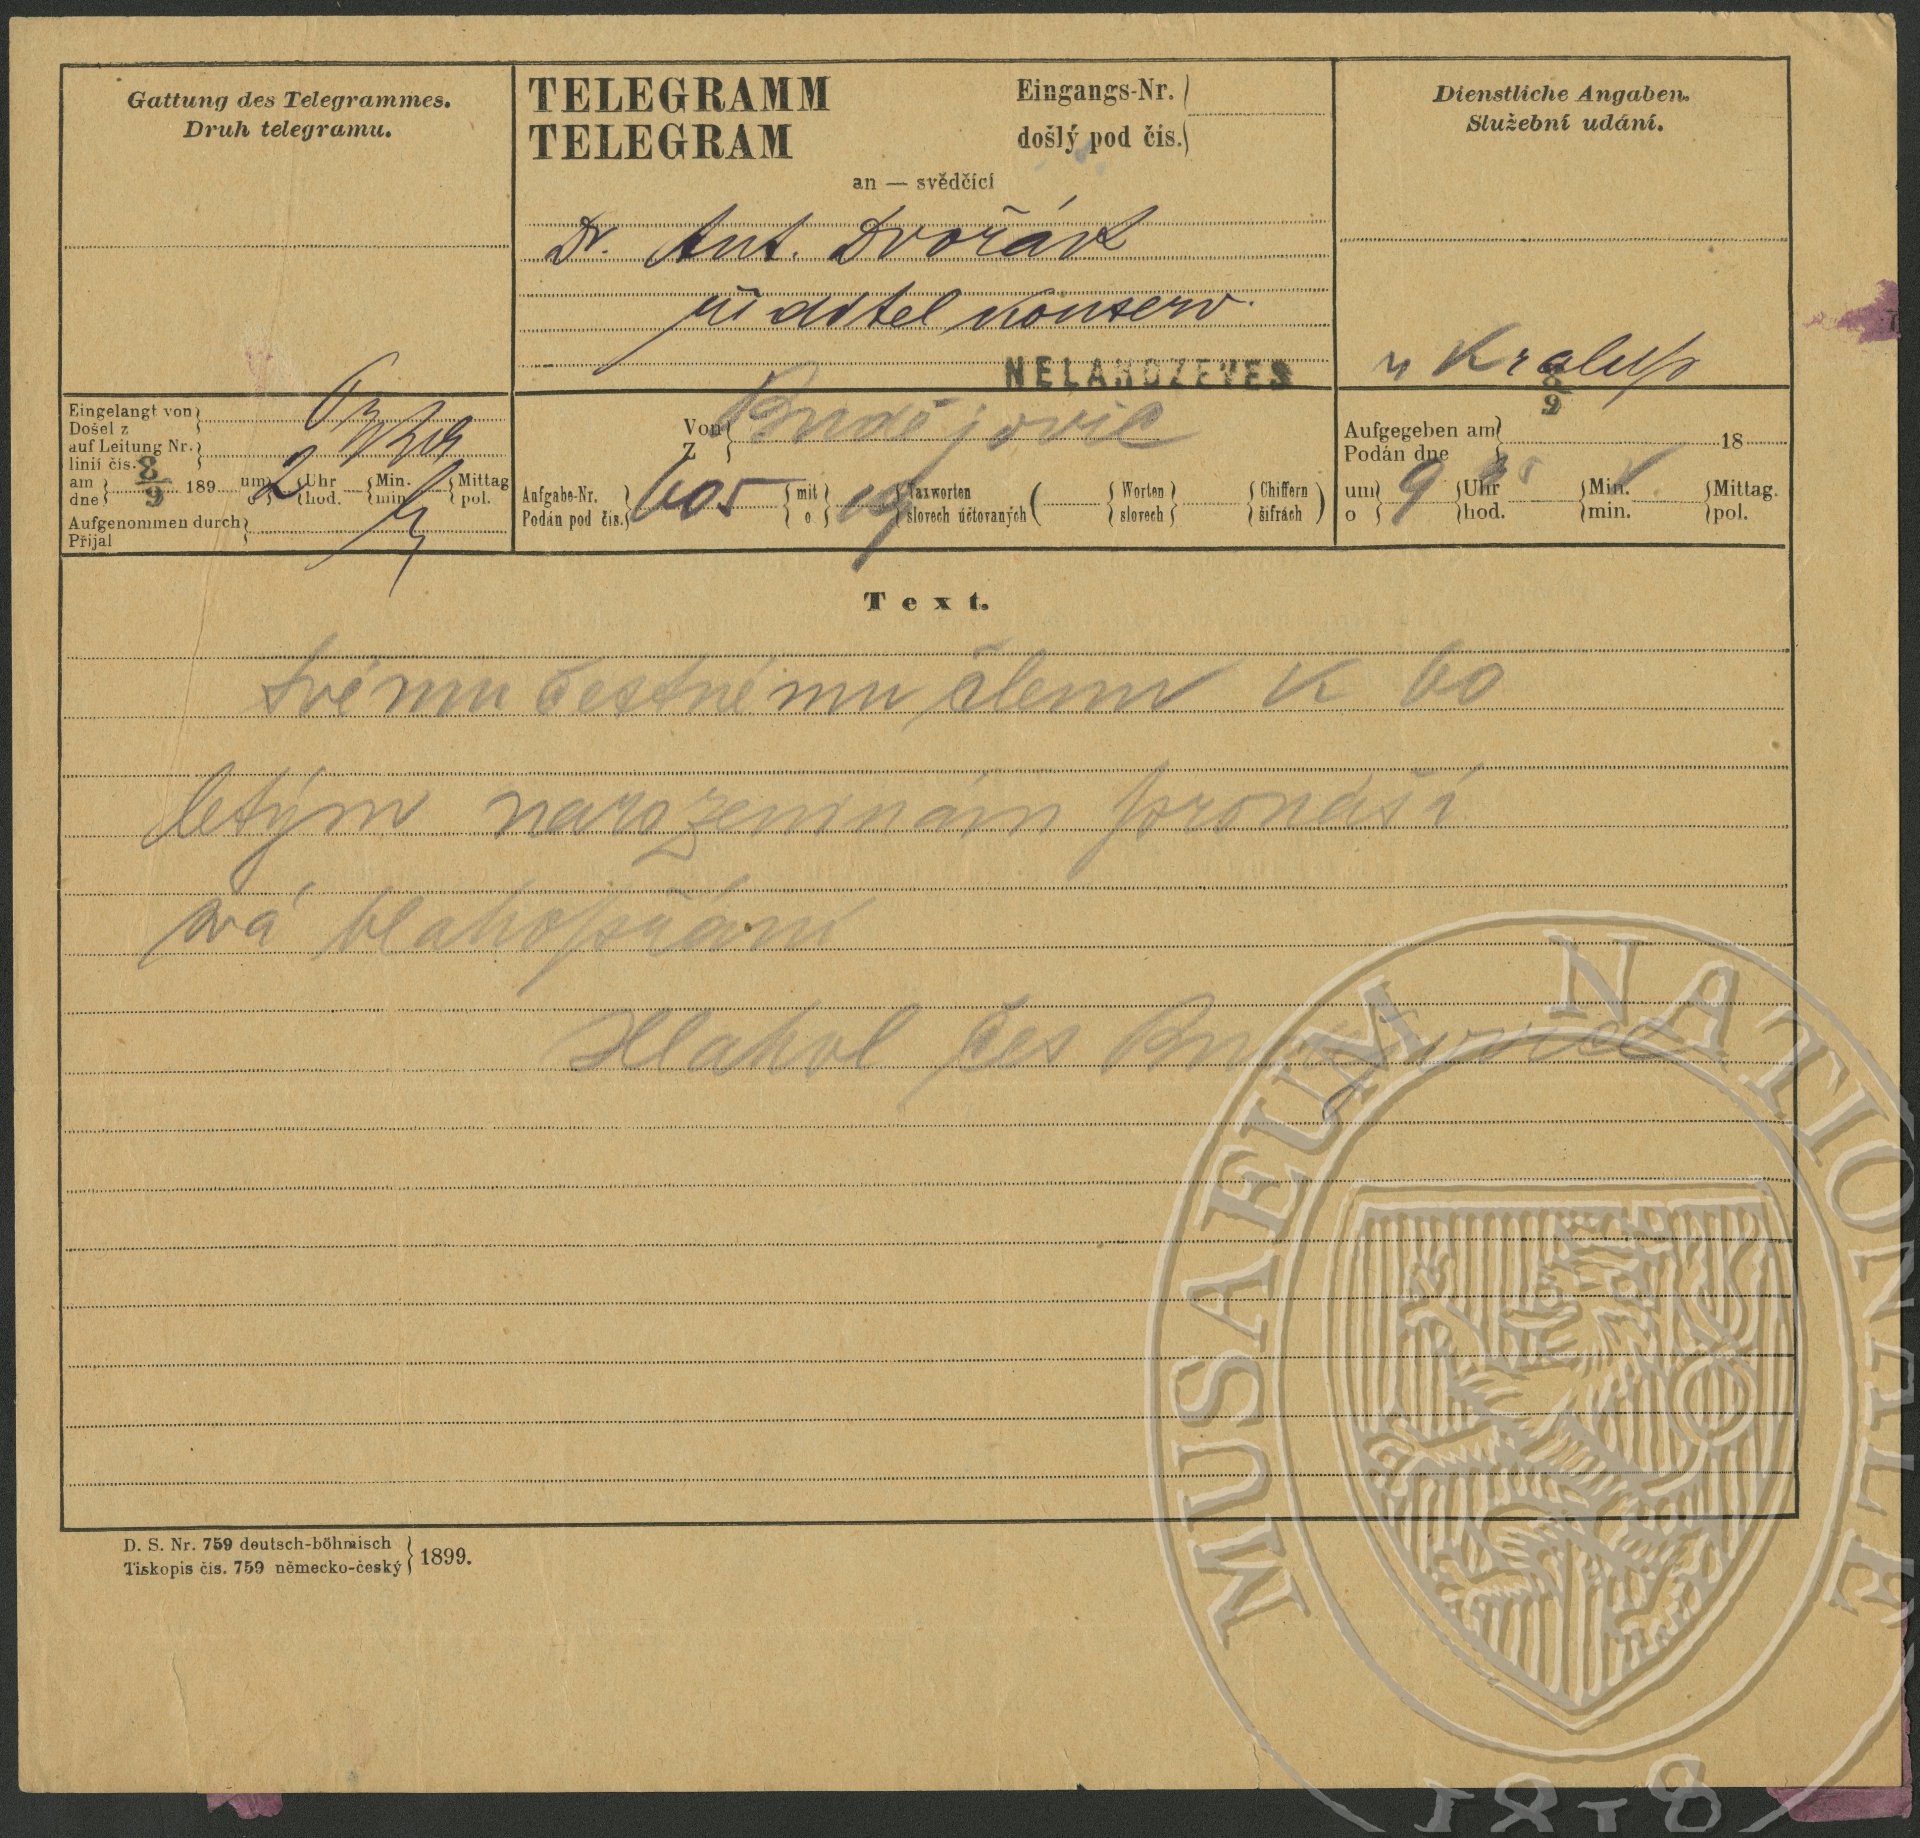 Gattung des Telegrammes.
Druh telegramu.
TELEGRAMM
TELEGRAM
Eingangs-Nr.
došlý pod čis.
an — svědčící
Dienstliche Angaben.
Služební udání.
Dr. Ant. Dvořák
ředitel konserv.
NELAHOZEVES
u Kralup
Eingelangt von
Došel z
auf Leitung Nr.
linii čís.
am dne 8/9 189 um o 2 Uhr hod. Min. min. Mittag pol.
Aufgenommen durch
Přijal
Von
Z
Budějovic
Aufgabe-Nr.
Podán pod čis.
605 mit o 19 Taxworten slovech účtovaných ( Worten slovech Chiffern šifrách )
Aufgegeben am
Podán dne
8/9 18
um o 9 Uhr hod. Min. min. Mittag. pol.
Text.
Svému čestnému členu k 60
letým narozeninám pronáší
svá blahopřání
Hlahol Čes Budějovice
D. S. Nr. 759 deutsch-böhmisch
Tiskopis čís. 759 německo-český
1899.
MUSAEUM NATIONALE
1818